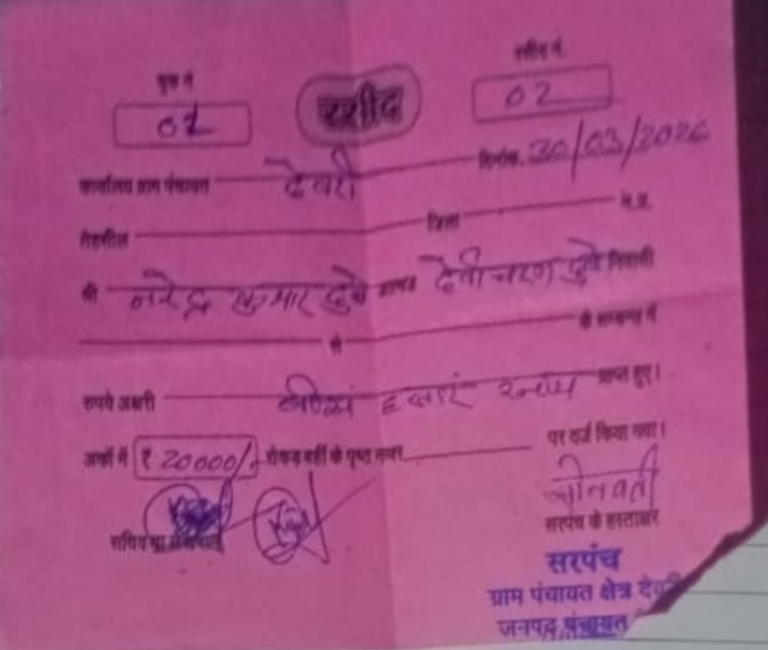 बुक नं. रसीद नं.
01 रसीद 02
कार्यालय ग्राम पंचायत देवरी दिनांक. 30/03/2026
तहसील जिला म.प्र.
श्री नरेन्द्र कुमार दुबे आत्मज देवीचरण दुबे निवासी
से के सम्बन्ध में
रुपये अक्षरी हजार प्राप्त हुए।
अंकों में ₹ 20000/- रोकड़ बही के पृष्ठ नम्बर पर दर्ज किया गया।
सचिव
सरपंच के हस्ताक्षर
सरपंच
ग्राम पंचायत क्षेत्र
जनपद पंचायत